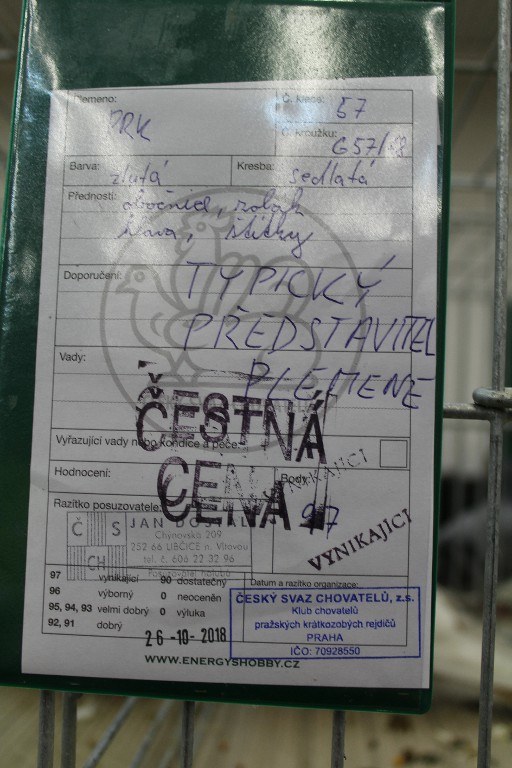 Plemeno: PRK
Č. klece: 57
Č. kroužku: G57/18
Barva: žlutá
Kresba: sedlatá
Přednosti: obočnice, zobák
hlava, štítky
Doporučení: TYPICKÝ
PŘEDSTAVITEL
PLEMENE
Vady:
ČESTNÁ
CENA
Vyřazující vady nebo kondice a péče:
Hodnocení:
VYNIKAJÍCÍ
Body:
97
VYNIKAJÍCÍ
Razítko posuzovatele:
Č S
CH
JAN
Chýnovská 209
252 66 LIBČICE n. Vltavou
tel. č. 606 22 32 96
Posuzovatel holubů
97 vynikající 90 dostatečný
96 výborný 0 neoceněn
95, 94, 93 velmi dobrý 0 výluka
92, 91 dobrý
26 -10- 2018
Datum a razítko organizace:
ČESKÝ SVAZ CHOVATELŮ, z.s.
Klub chovatelů
pražských krátkozobých rejdičů
PRAHA
IČO: 70928550
WWW.ENERGYSHOBBY.CZ